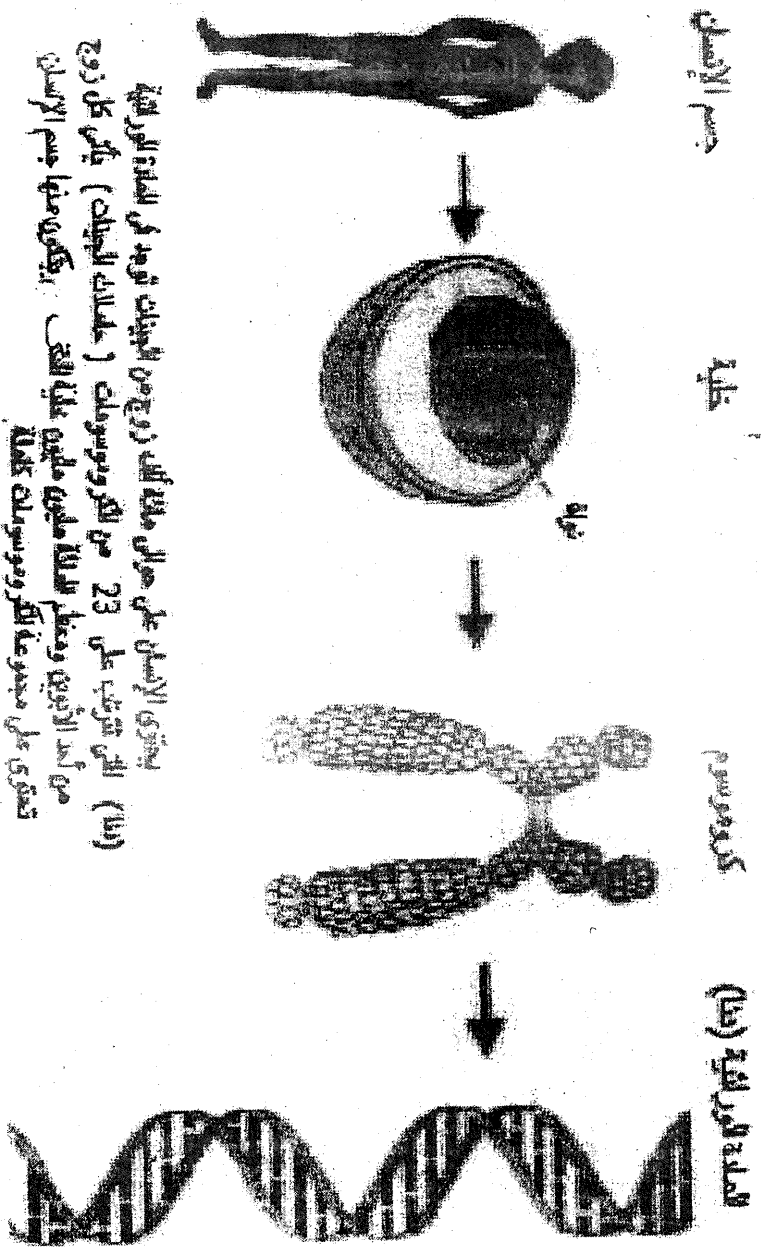 جسم الإنسان
خلية
كروموسوم
المادة الوراثية (دنا)
نواة
يحتوى الإنسان على حوالى مائة ألف زوج من الجينات توجد فى المادة الوراثية
(دنا) التى تترتب على 23 من الكروموسومات ( حاملات الجينات ) يأتى كل زوج
من أحد الأبوين المائة مليون مليون خلية التى يتكون منها جسم الإنسان
تحتوى على مجموعة الكروموسومات كاملة